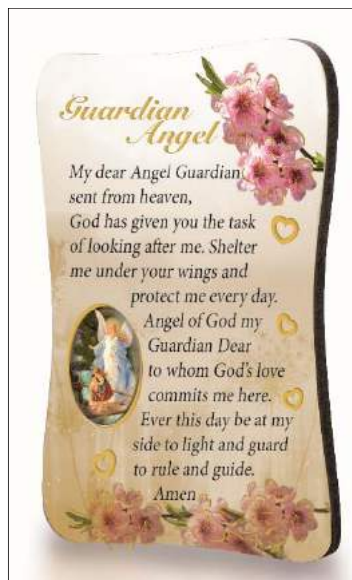 Guardian
Angel
My dear Angel Guardian
sent from heaven,
God has given you the task
of looking after me. Shelter
me under your wings and
protect me every day.
Angel of God my
Guardian Dear
to whom God's love
commits me here.
Ever this day be at my
side to light and guard
to rule and guide.
Amen